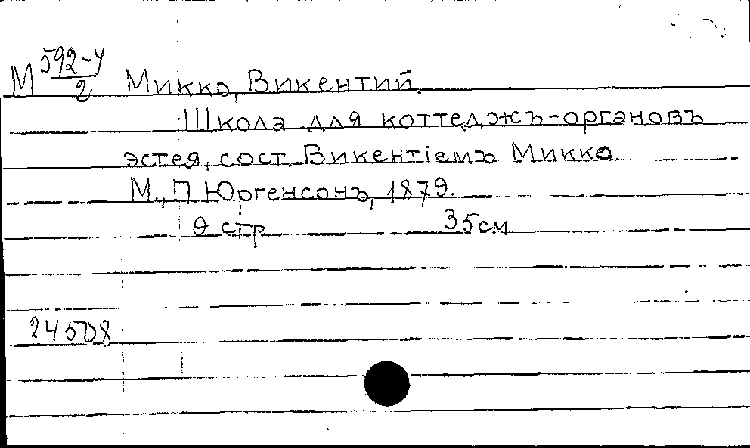 М 592-4/2 Микко, Викентий.
Школа для коттеджъ-органовъ
эстея, сост. Викентіемъ Микко.
М., П. Юргенсонъ, 1879.
9 стр. 35см
24508